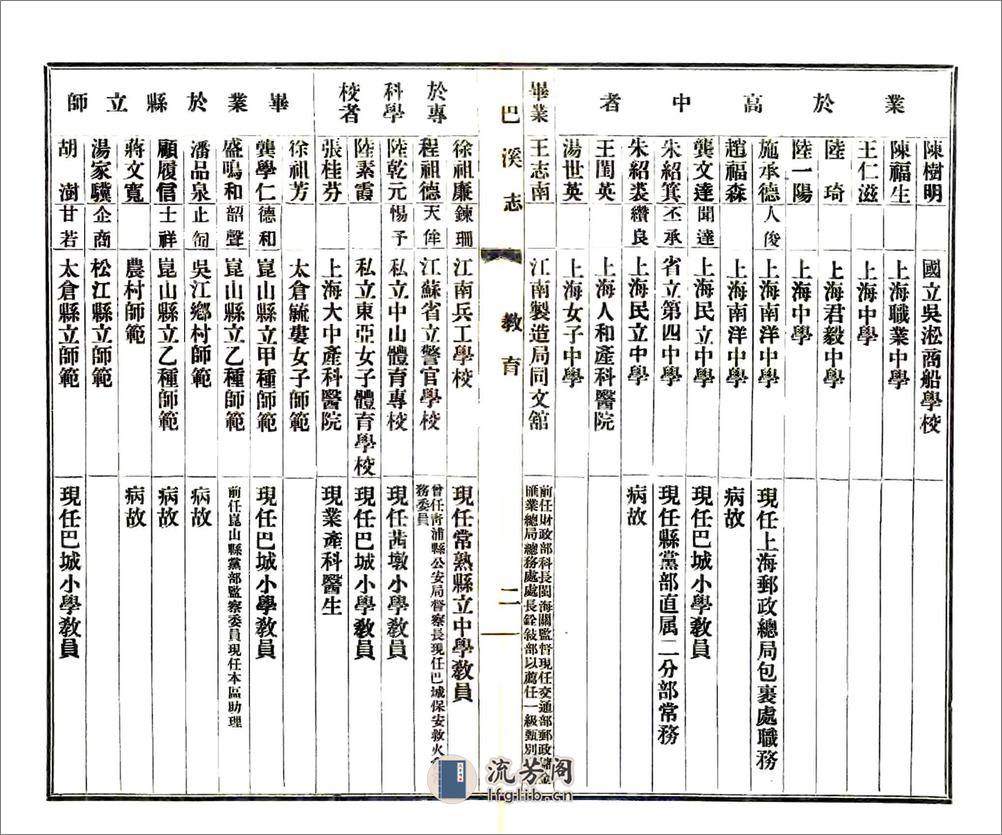 業於高中者
陳樹明 國立吳淞商船學校
陳福生 上海職業中學
王仁滋 上海中學
陸琦 上海君毅中學
陸一陽 上海中學
施承德 人俊 上海南洋中學 現任上海郵政總局包裹處職務
趙福森 上海南洋中學 病故
龔文達 聞達 上海民立中學 現任巴城小學教員
朱紹箕 丕承 省立第四中學 現任縣黨部直属二分部常務
朱紹裘 纘良 上海民立中學 病故
王閨英 上海人和產科醫院
湯世英 上海女子中學
畢業
王志南 江南製造局同文舘 前任財政部科長閩海關監督現任交通部郵政儲金
匯業總局總務處處長銓敍部以薦任一級甄別
巴溪志 教育 二
於專科學校者
徐祖廉 鍊珊 江南兵工學校 現任常熟縣立中學教員
程祖德 天侔 江蘇省立警官學校 曾任靑浦縣公安局督察長現任巴城保安救火會
務委員
陸乾元 惕予 私立中山體育專校 現任茜墩小學教員
陸素霞 私立東亞女子體育學校 現任巴城小學教員
張桂芬 上海大中產科醫院 現業產科醫生
畢業於縣立師
徐祖芳 太倉毓婁女子師範
龔學仁 德和 崑山縣立甲種師範 現任巴城小學教員
盛鳴和 韶聲 崑山縣立乙種師範 前任崑山縣黨部監察委員現任本區助理
潘品泉 止匋 吳江鄉村師範 病故
顧履信 士祥 崑山縣立乙種師範 病故
蔣文寬 農村師範 病故
湯家驥 企商 松江縣立師範
胡澍 甘若 太倉縣立師範 現任巴城小學教員
流芳阁
lfglib.cn